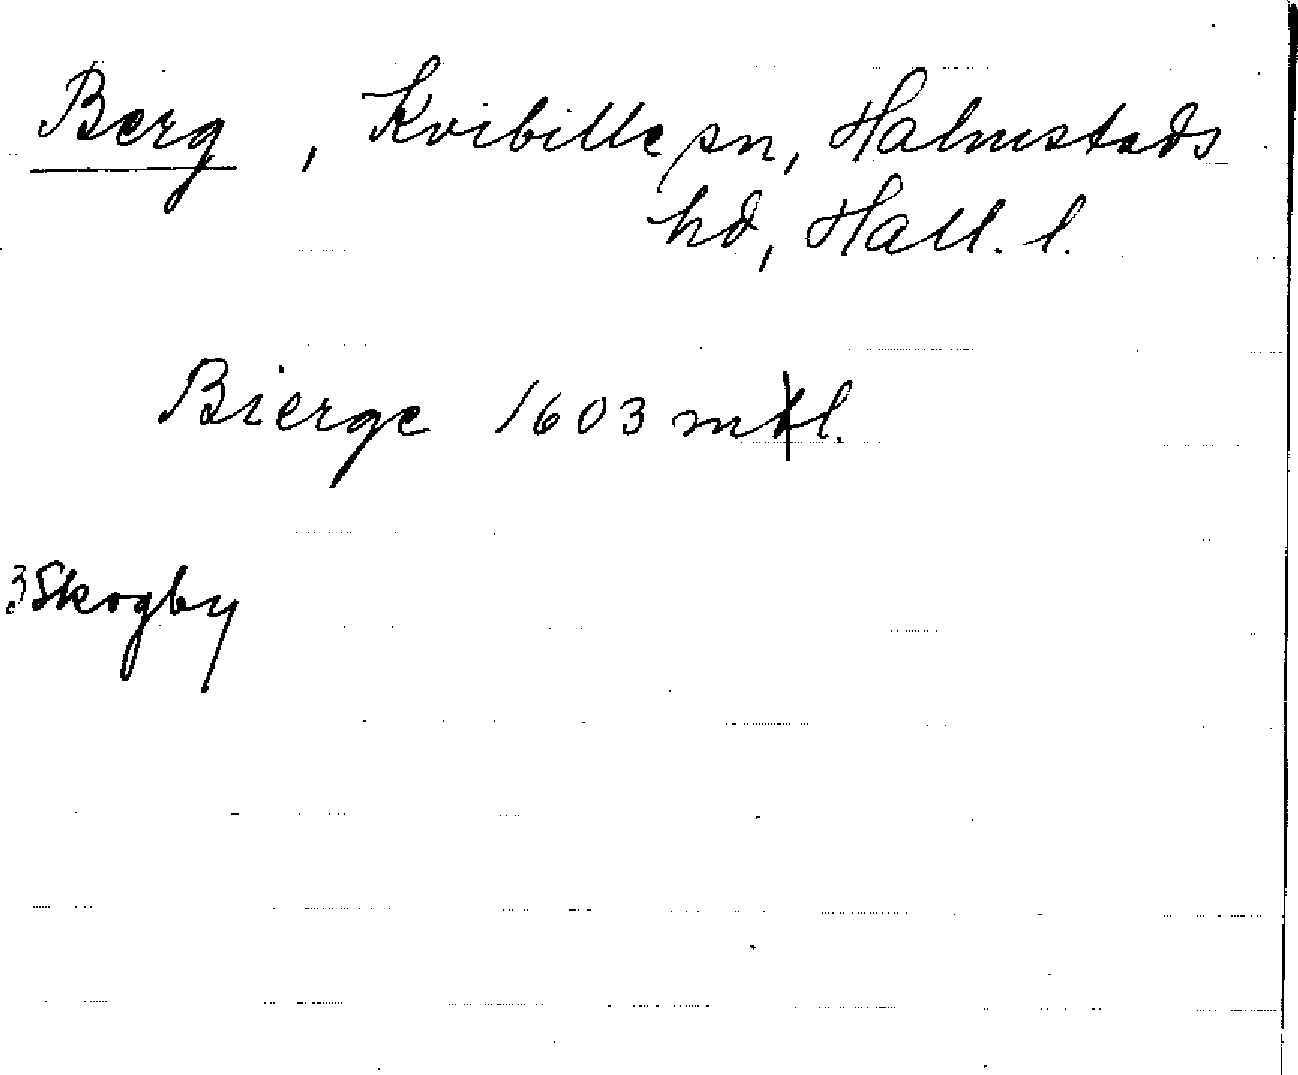 Berg, Kvibille sn, Halmstads
hd, Hall. l.
Bierge 1603 mtl.
3 Skogby